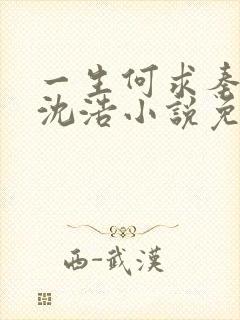 一生何求秦
沈浩小說免
西-武漢